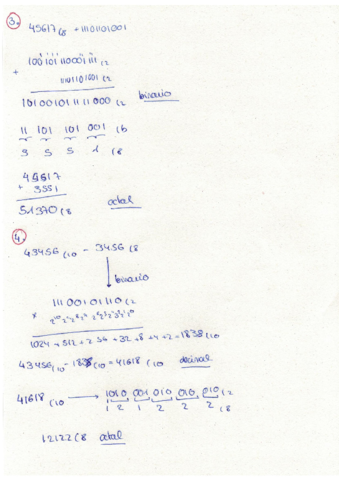 3.
45617(8 + 11101101001
100101110001111(2
+ 11101101001(2
101001011111000(2 binario
11 101 101 001 (b
3 5 5 1 (8
45617
+ 3551
51370(8 octal
4.
43456(10 - 3456(8
binario
11100101110(2
x 2¹⁰ 2⁹ 2⁸ 2⁷ 2⁶ 2⁵ 2⁴ 2³ 2² 2¹ 2⁰
1024 + 512 + 256 + 32 + 8 + 4 + 2 = 1838(10
43456(10 - 1838(10 = 41618(10 decimal
41618(10 → 1010 001 010 010 010(2
1 2 1 2 2 2 (8
12122(8 octal